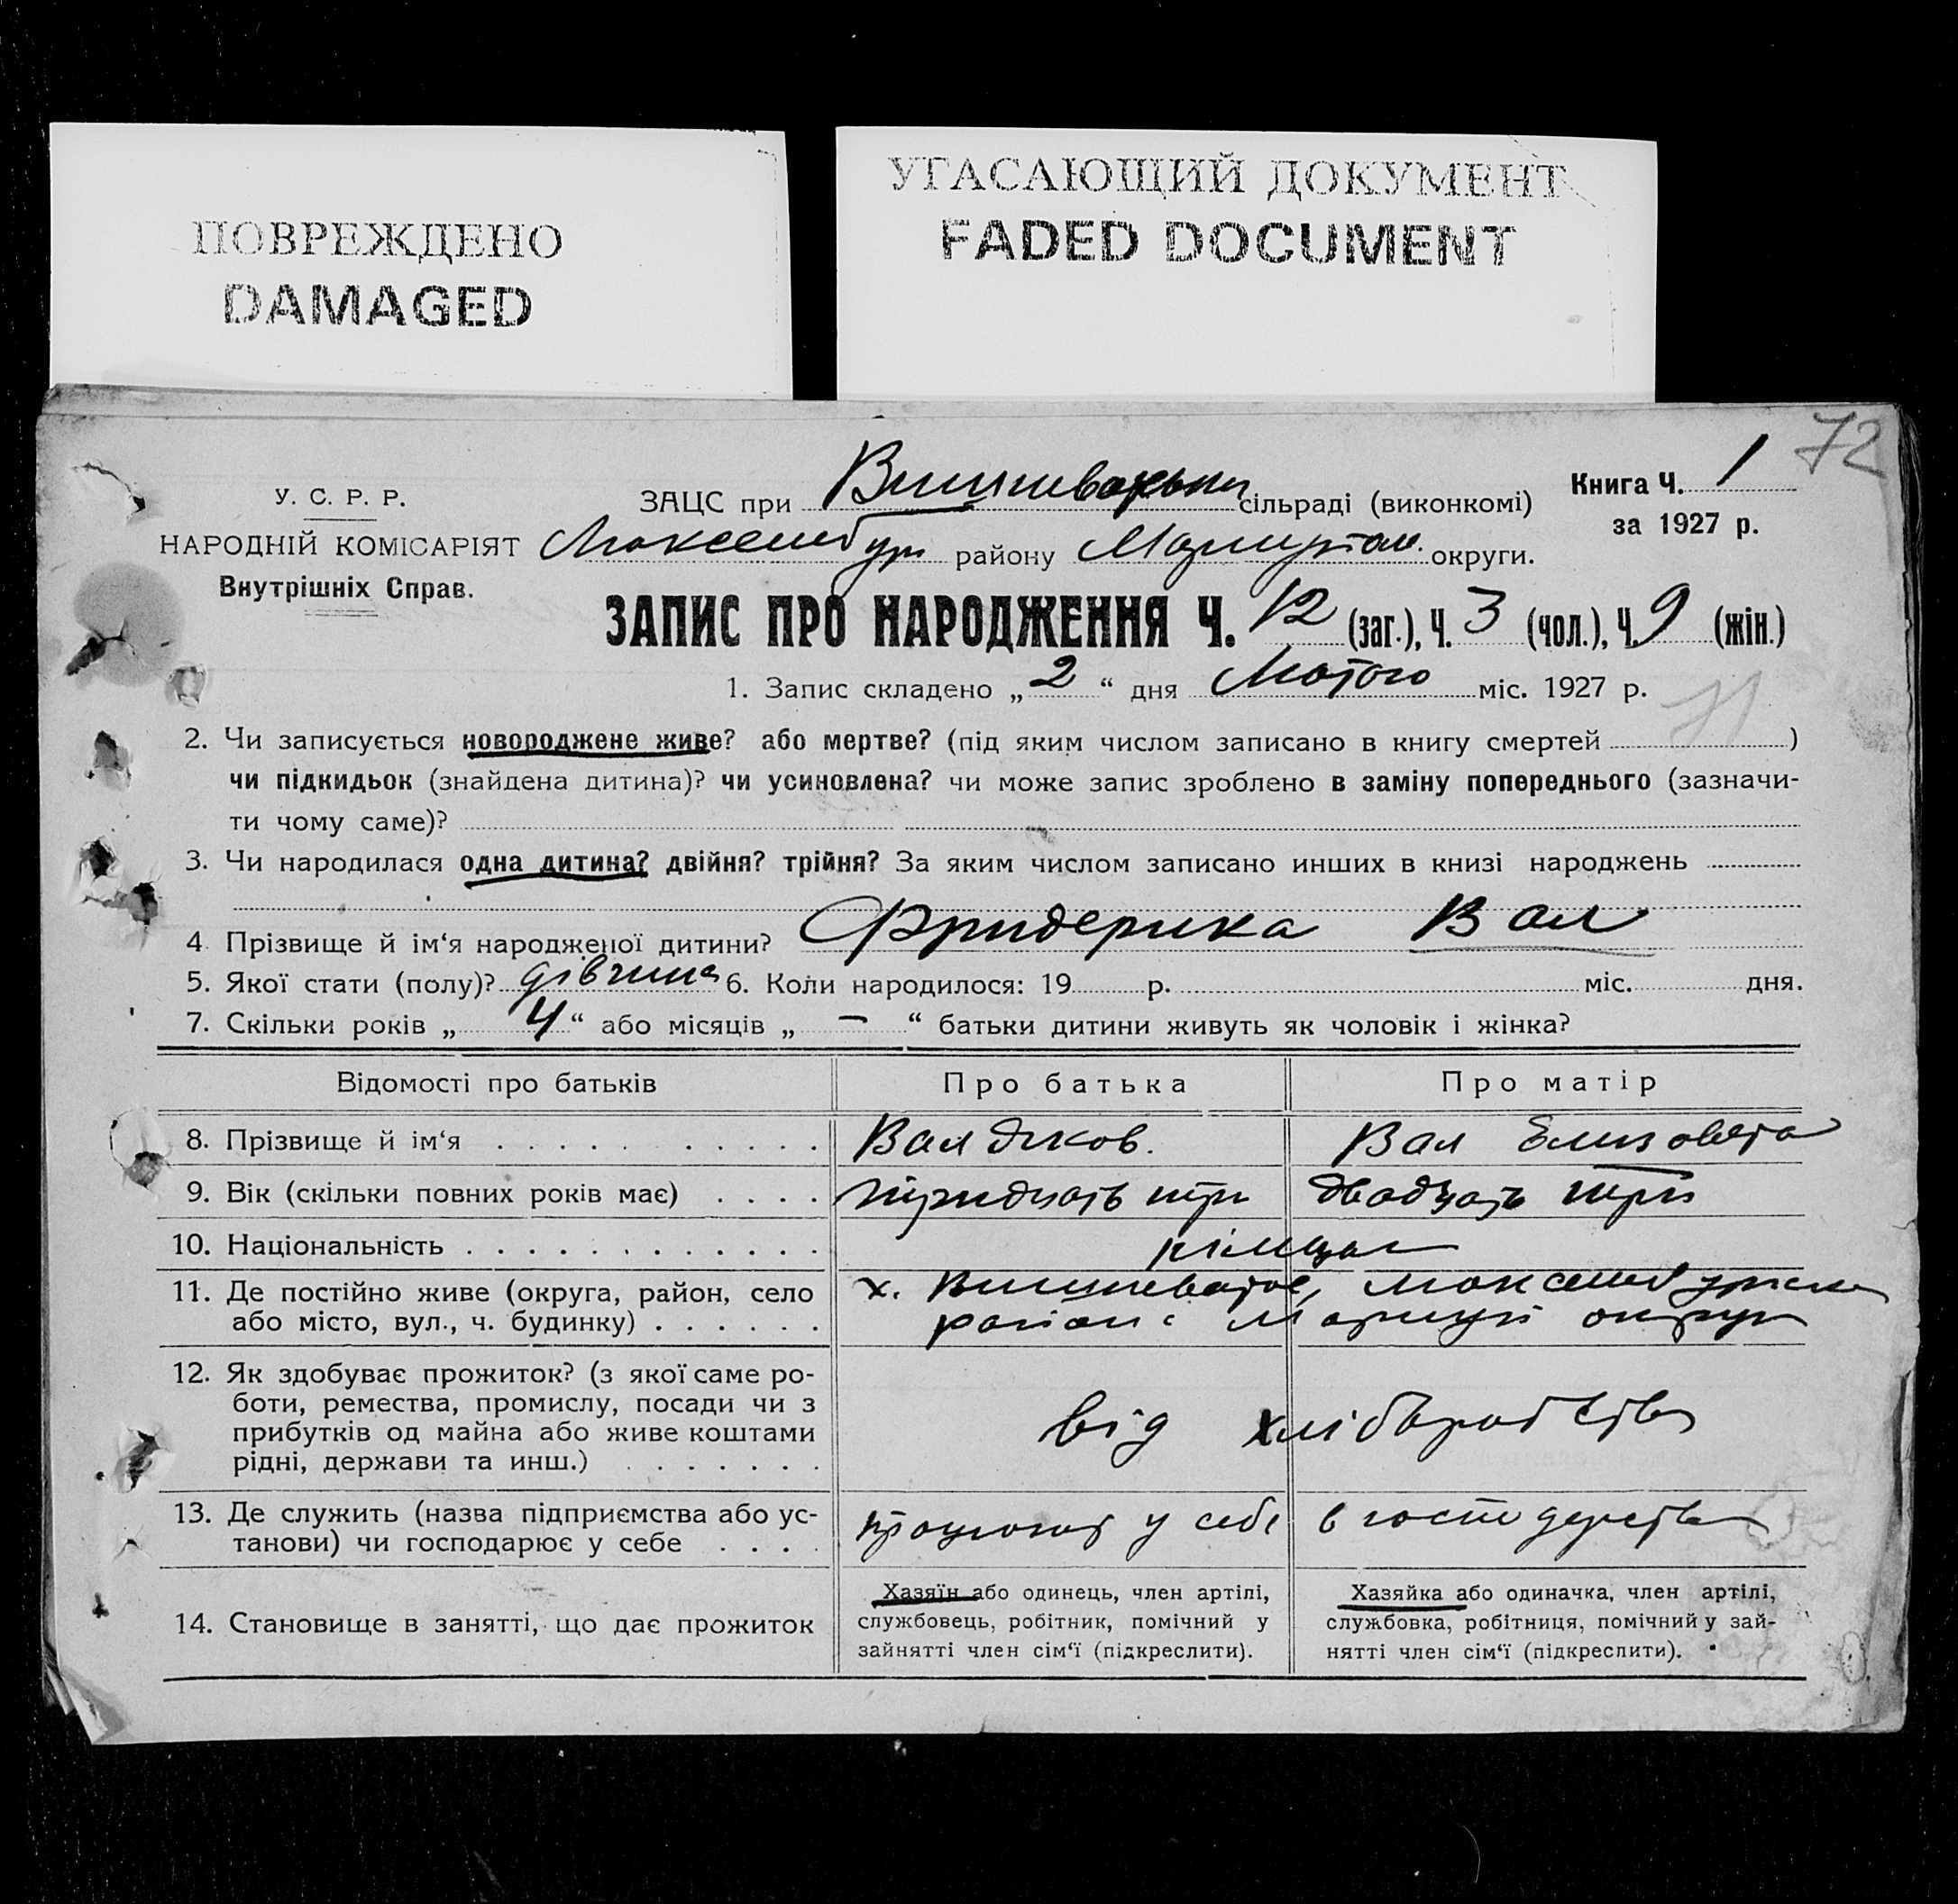 ПОВРЕЖДЕНО
DAMAGED
УГАСАЮЩИЙ ДОКУМЕНТ
FADED DOCUMENT
72
У. С. Р. Р.
НАРОДНІЙ КОМІСАРІЯТ
Внутрішніх Справ.
ЗАЦС при сільраді (виконкомі)
Книга Ч. 1
за 1927 р.
району округи.
ЗАПИС ПРО НАРОДЖЕННЯ Ч. 12 (заг.), Ч. 3 (чол.), Ч. 9 (жін.)
1. Запис складено „ 2 “ дня Лютого міс. 1927 р.
71
2. Чи записується новороджене живе? або мертве? (під яким числом записано в книгу смертей )
чи підкидьок (знайдена дитина)? чи усиновлена? чи може запис зроблено в заміну попереднього (зазначи-
ти чому саме)?
3. Чи народилася одна дитина? двійня? трійня? За яким числом записано инших в книзі народжень
4. Прізвище й ім‘я народженої дитини? Фридерика Вал
5. Якої стати (полу)? дівчина 6. Коли народилося: 19 р. міс. дня.
7. Скільки років „ 4 “ або місяців „ — “ батьки дитини живуть як чоловік і жінка?
Відомості про батьків Про батька Про матір
8. Прізвище й ім‘я Вал Яков. Вал Елизовета
9. Вік (скільки повних років має) тридцать три двадцать три
10. Національність німци
11. Де постійно живе (округа, район, село
або місто, вул., ч. будинку)
х. Вишневатое,
округи
12. Як здобуває прожиток? (з якої саме ро-
боти, ремества, промислу, посади чи з
прибутків од майна або живе коштами
рідні, держави та инш.)
від хліборобства
13. Де служить (назва підприємства або ус-
танови) чи господарює у себе
у себе в господарстве
14. Становище в занятті, що дає прожиток
Хазяїн або одинець, член артілі,
службовець, робітник, помічний у
зайнятті член сім‘ї (підкреслити).
Хазяйка або одиначка, член артілі,
службовка, робітниця, помічний у зай-
нятті член сім‘ї (підкреслити).